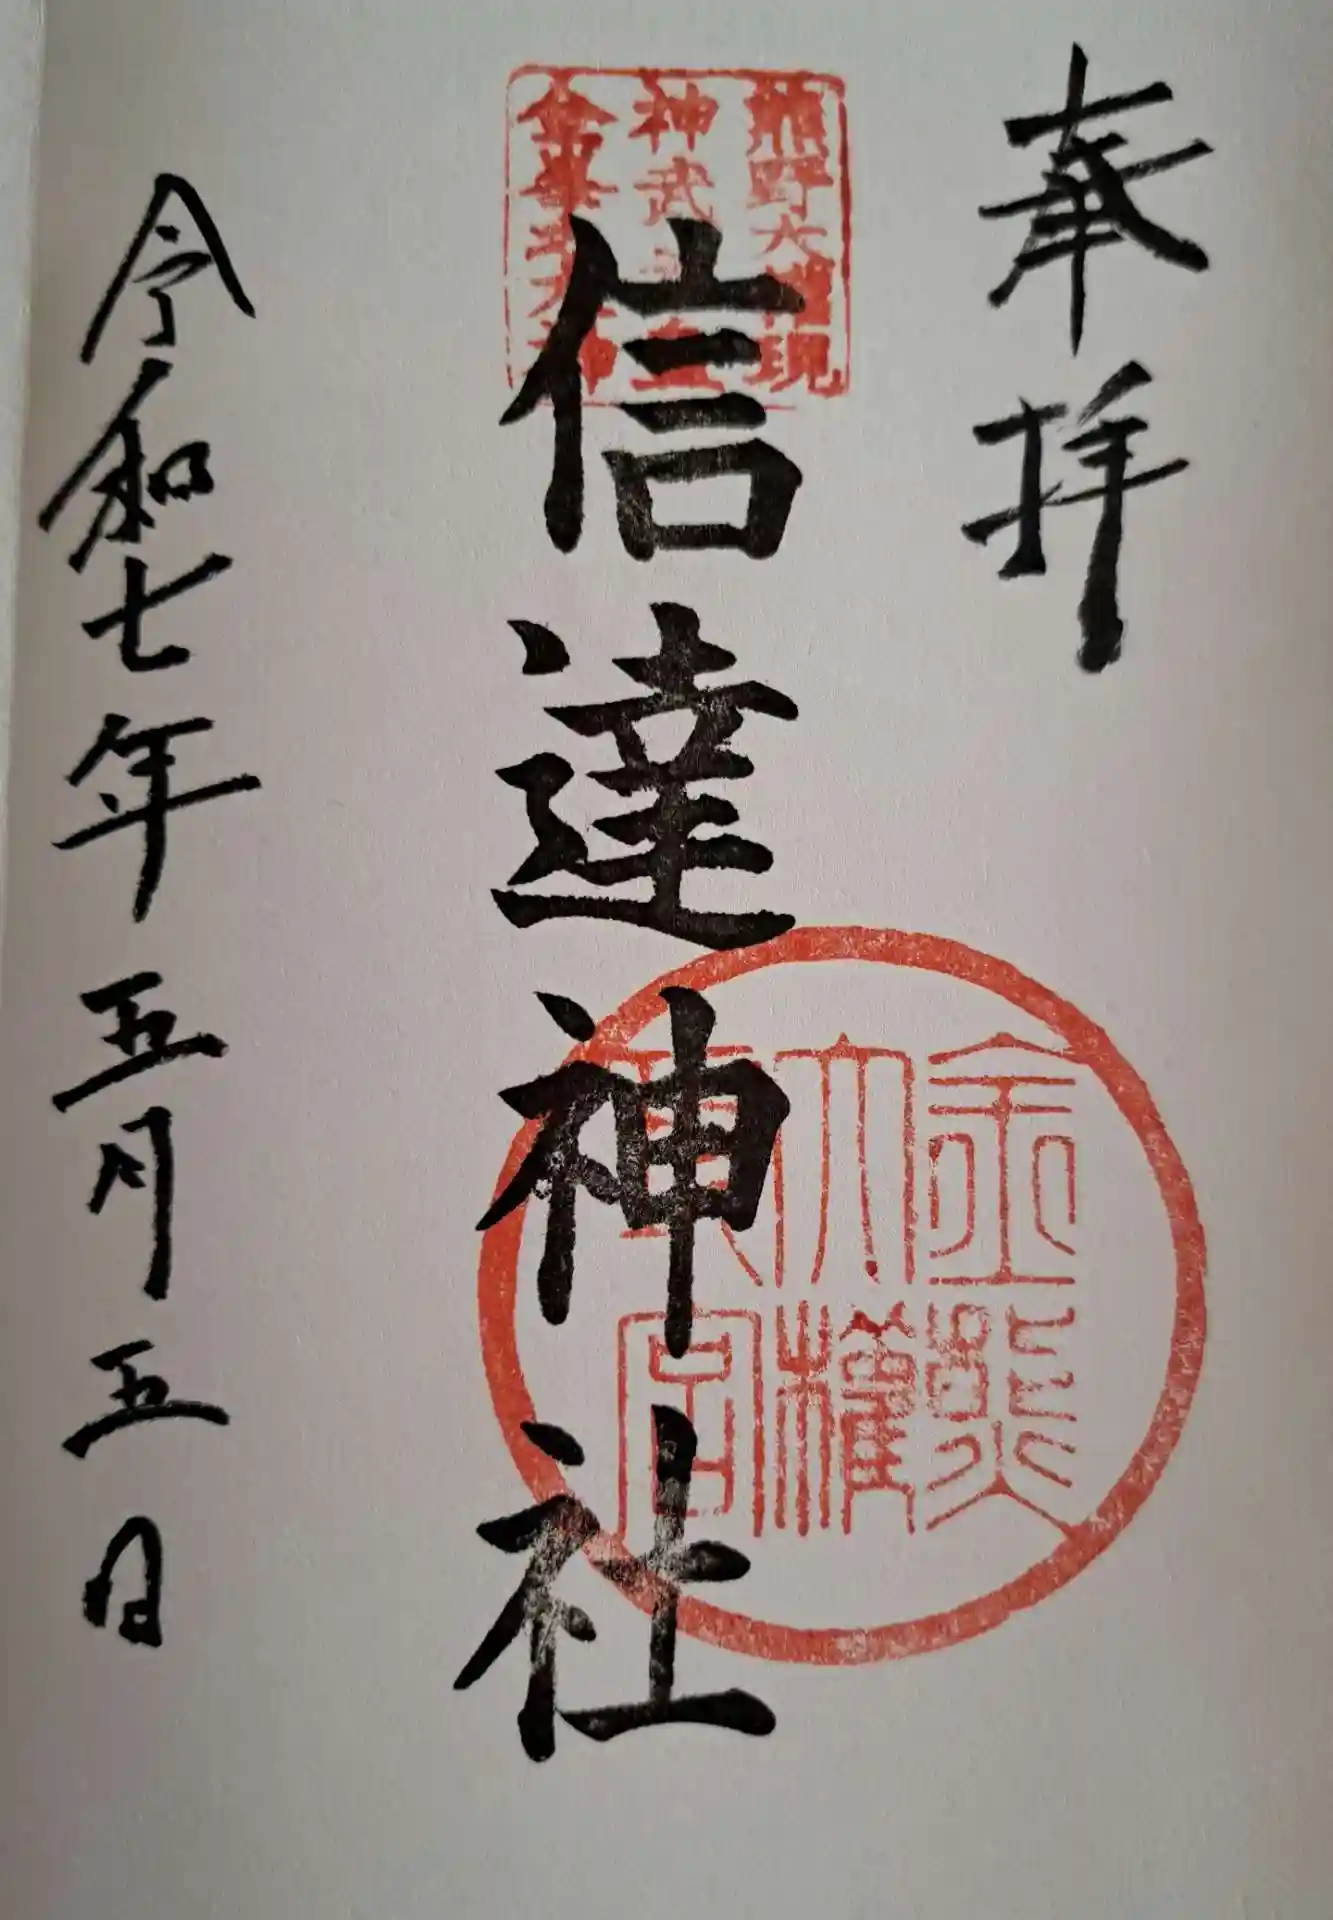 奉拝
熊野大権現
神武天皇
金峯
大神
信達神社
金熊
大権
宮
令和七年五月五日